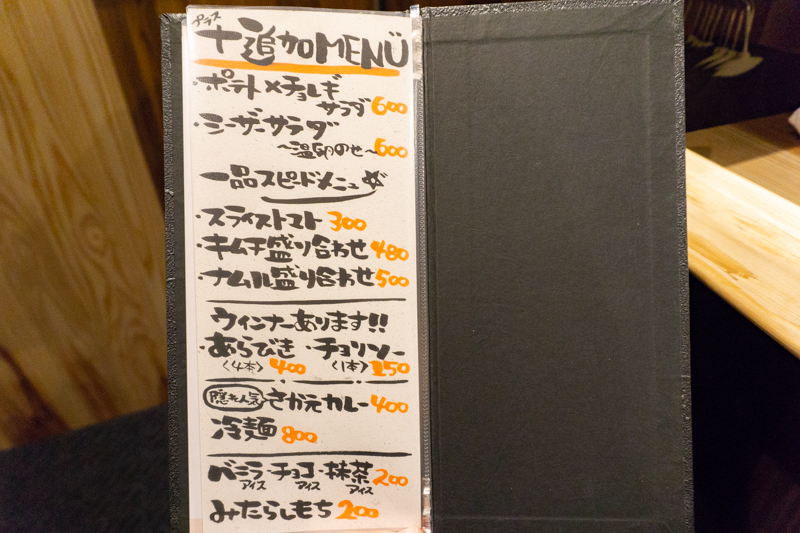 プラス
十追加MENÜ
・ポテト×チョレギ
サラダ 600
・シーザーサラダ
〜温卵のせ〜 600
一品スピードメニュー
・スライストマト 300
・キムチ盛り合わせ 480
・ナムル盛り合わせ 500
ウィンナーあります!!
・あらびき ・チョリソー
〈4本〉400 〈1本〉250
隠れ人気 さか元カレー 400
冷麺 800
バニラ・チョコ・抹茶 200
アイス アイス アイス
みたらしもち 200